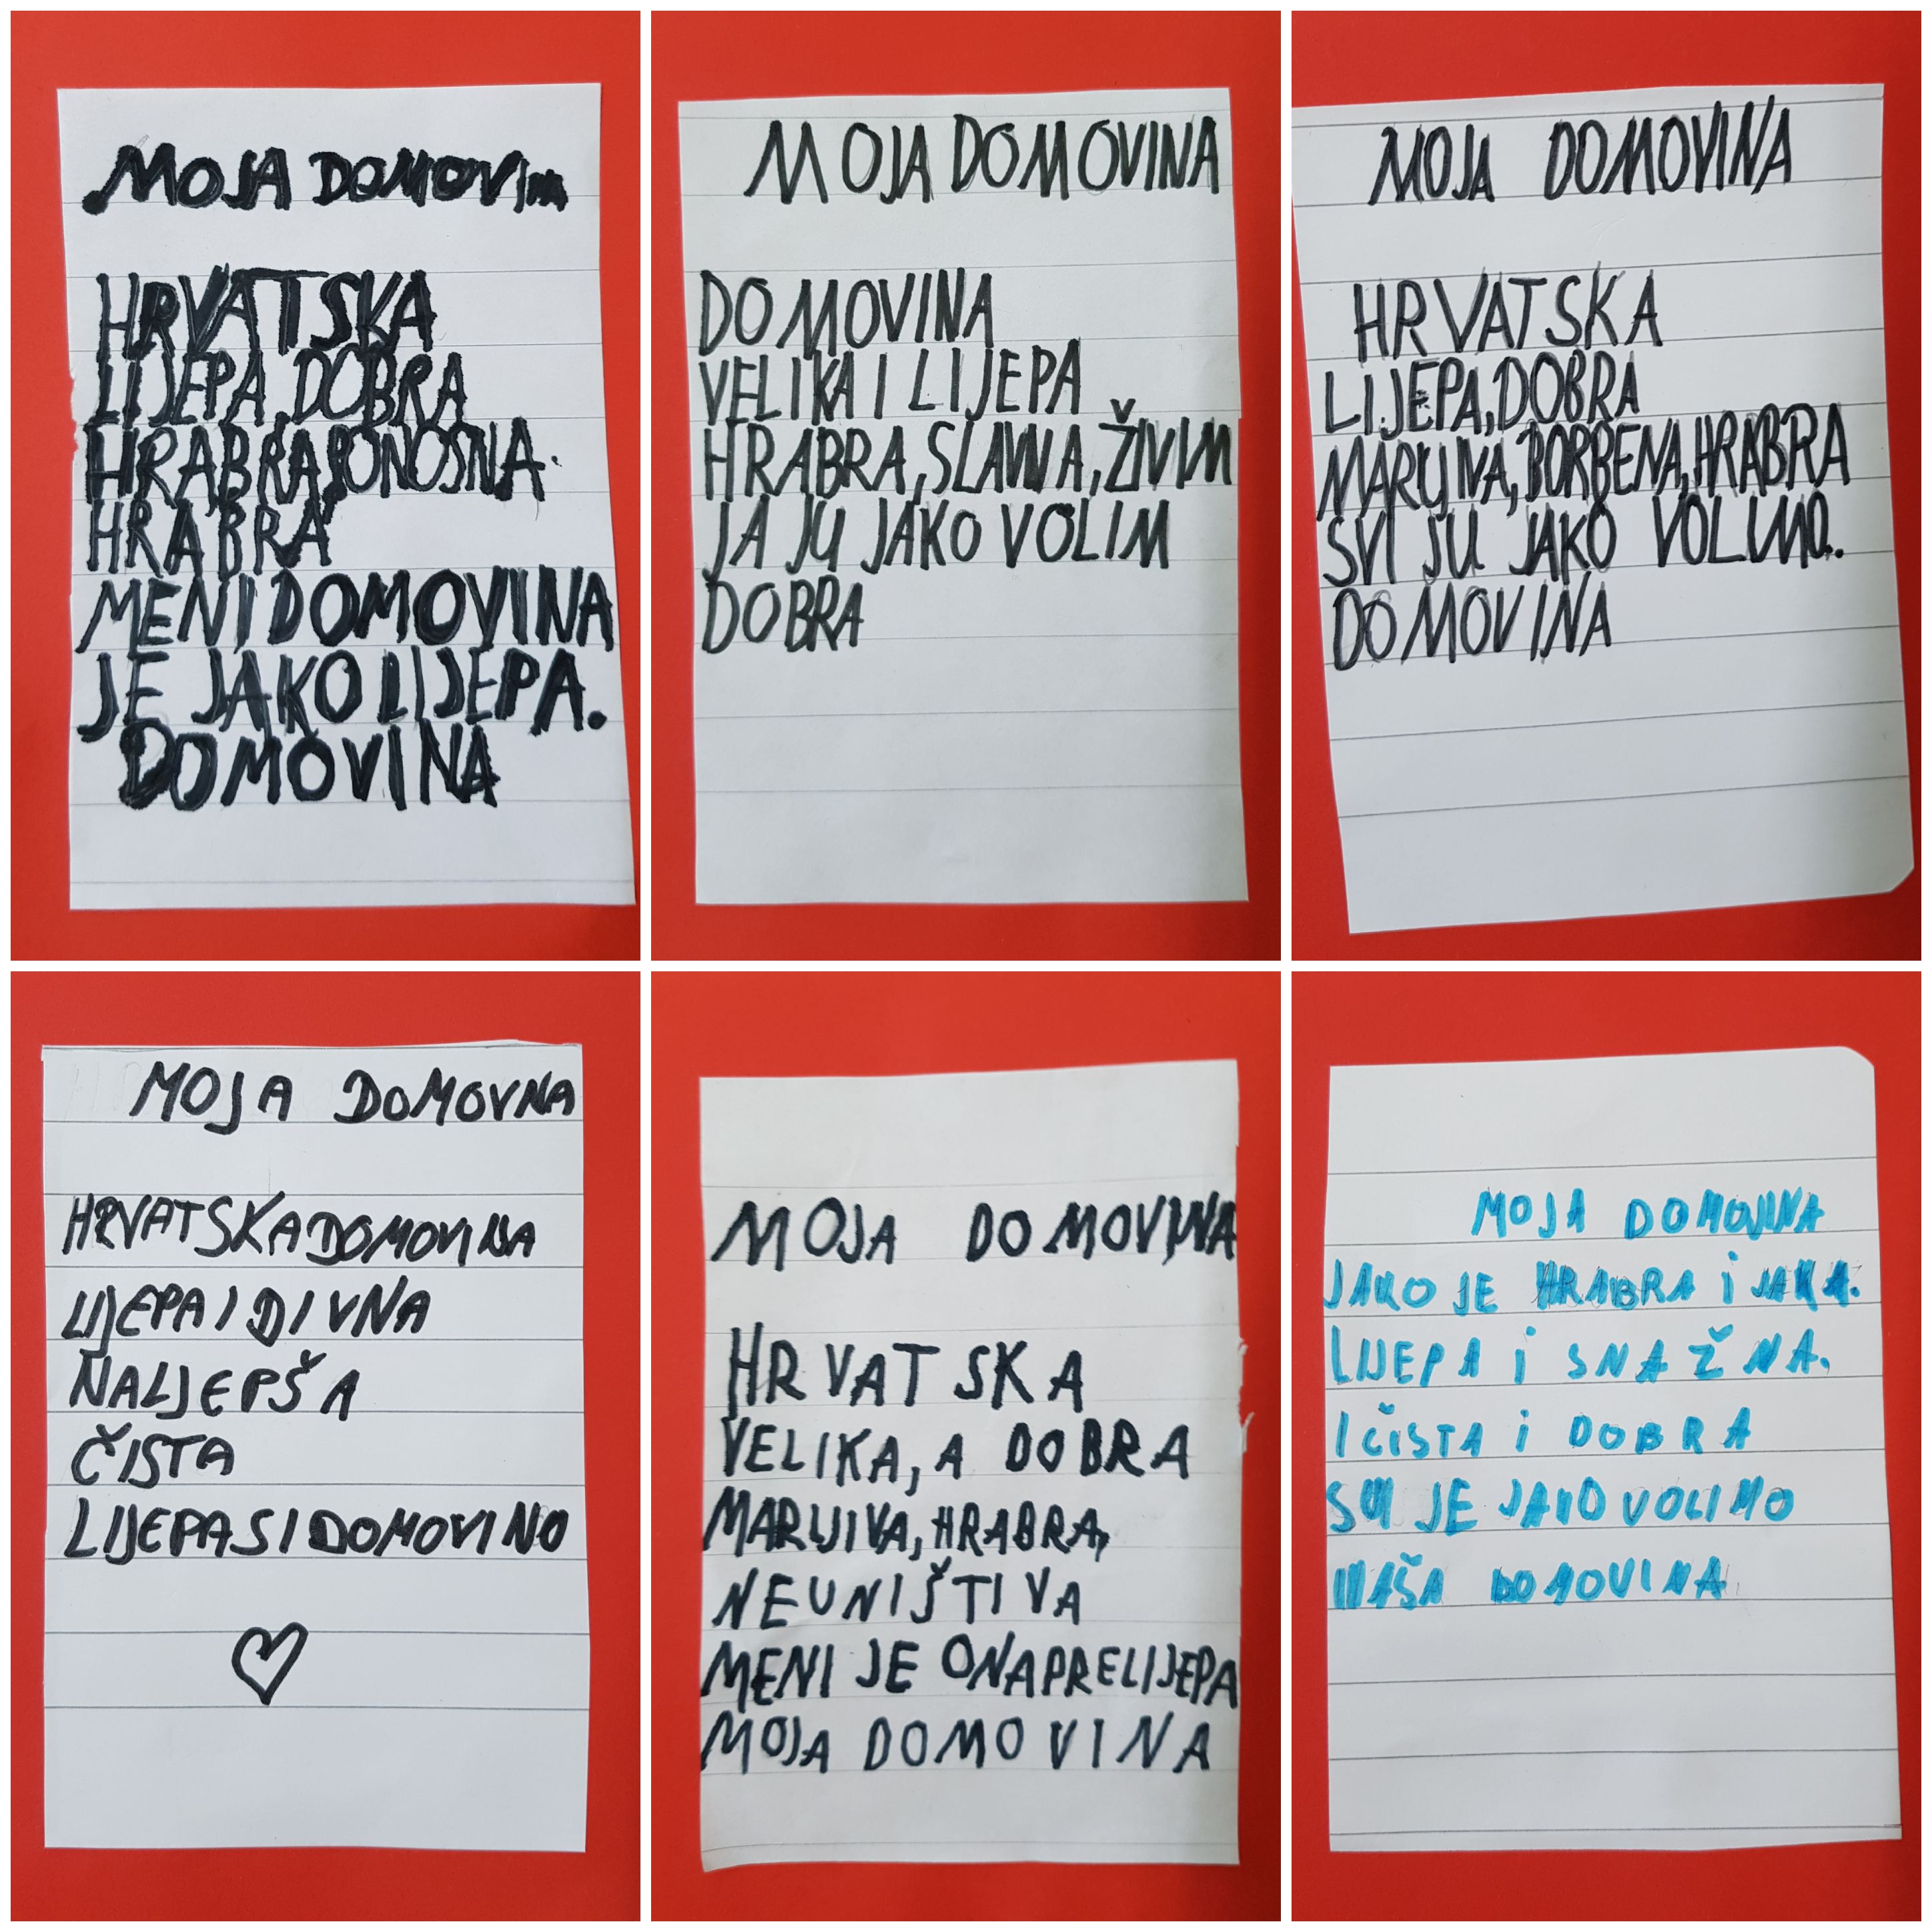 MOJA DOMOVINA
HRVATSKA
LIJEPA, DOBRA
HRABRA, PONOSNA.
HRABRA
MENI DOMOVINA
JE JAKO LIJEPA.
DOMOVINA
MOJA DOMOVINA
DOMOVINA
VELIKA I LIJEPA
HRABRA, SLAVNA, ŽIVIM
JA JU JAKO VOLIM
DOBRA
MOJA DOMOVINA
HRVATSKA
LIJEPA, DOBRA
MARLJIVA, BORBENA, HRABRA
SVI JU JAKO VOLIMO.
DOMOVINA
MOJA DOMOVNA
HRVATSKA DOMOVINA
LIJEPA I DIVNA
NALJEPŠA
ČISTA
LIJEPA SI DOMOVINO
MOJA DOMOVINA
HRVATSKA
VELIKA, A DOBRA
MARLJIVA, HRABRA,
NEUNIŠTIVA
MENI JE ONA PRELIJEPA
MOJA DOMOVINA
MOJA DOMOVINA
JAKO JE HRABRA i JAKA.
LIJEPA i SNAŽNA.
I ČISTA i DOBRA
SVI JE JAKO VOLIMO
NAŠA DOMOVINA